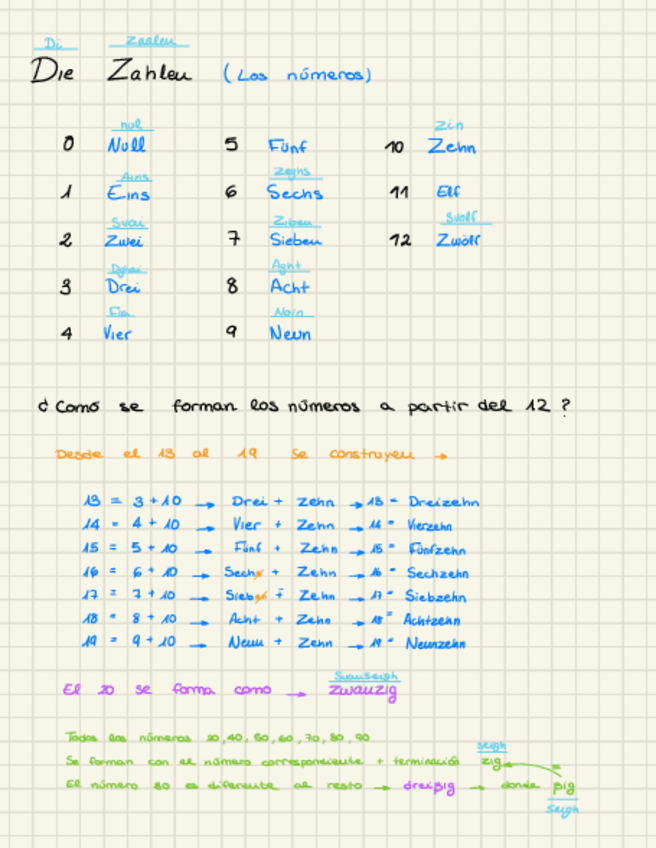 Di Zaalen
Die Zahlen (Los números)
nul Zin
0 Null 5 Fünf 10 Zehn
Ains Zeghs
1 Eins 6 Sechs 11 Elf
Svai Ziben Svolf
2 Zwei 7 Sieben 12 Zwölf
Aght
3 Drei 8 Acht
Fia Noin
4 Vier 9 Neun
¿Como se forman los números a partir del 12?
Desde el 13 al 19 se construyen →
13 = 3 + 10 → Drei + Zehn → 13 = Dreizehn
14 = 4 + 10 → Vier + Zehn → 14 = Vierzehn
15 = 5 + 10 → Fünf + Zehn → 15 = Fünfzehn
16 = 6 + 10 → Sechs + Zehn → 16 = Sechzehn
17 = 7 + 10 → Sieben + Zehn → 17 = Siebzehn
18 = 8 + 10 → Acht + Zehn → 18 = Achtzehn
19 = 9 + 10 → Neun + Zehn → 19 = Neunzehn
El 20 se forma como → zwanzig
Todos los números 20, 40, 50, 60, 70, 80, 90
seigh
Se forman con el número correspondiente + terminación zig
El número 30 es diferente al resto → dreißig → donde ßig
seigh